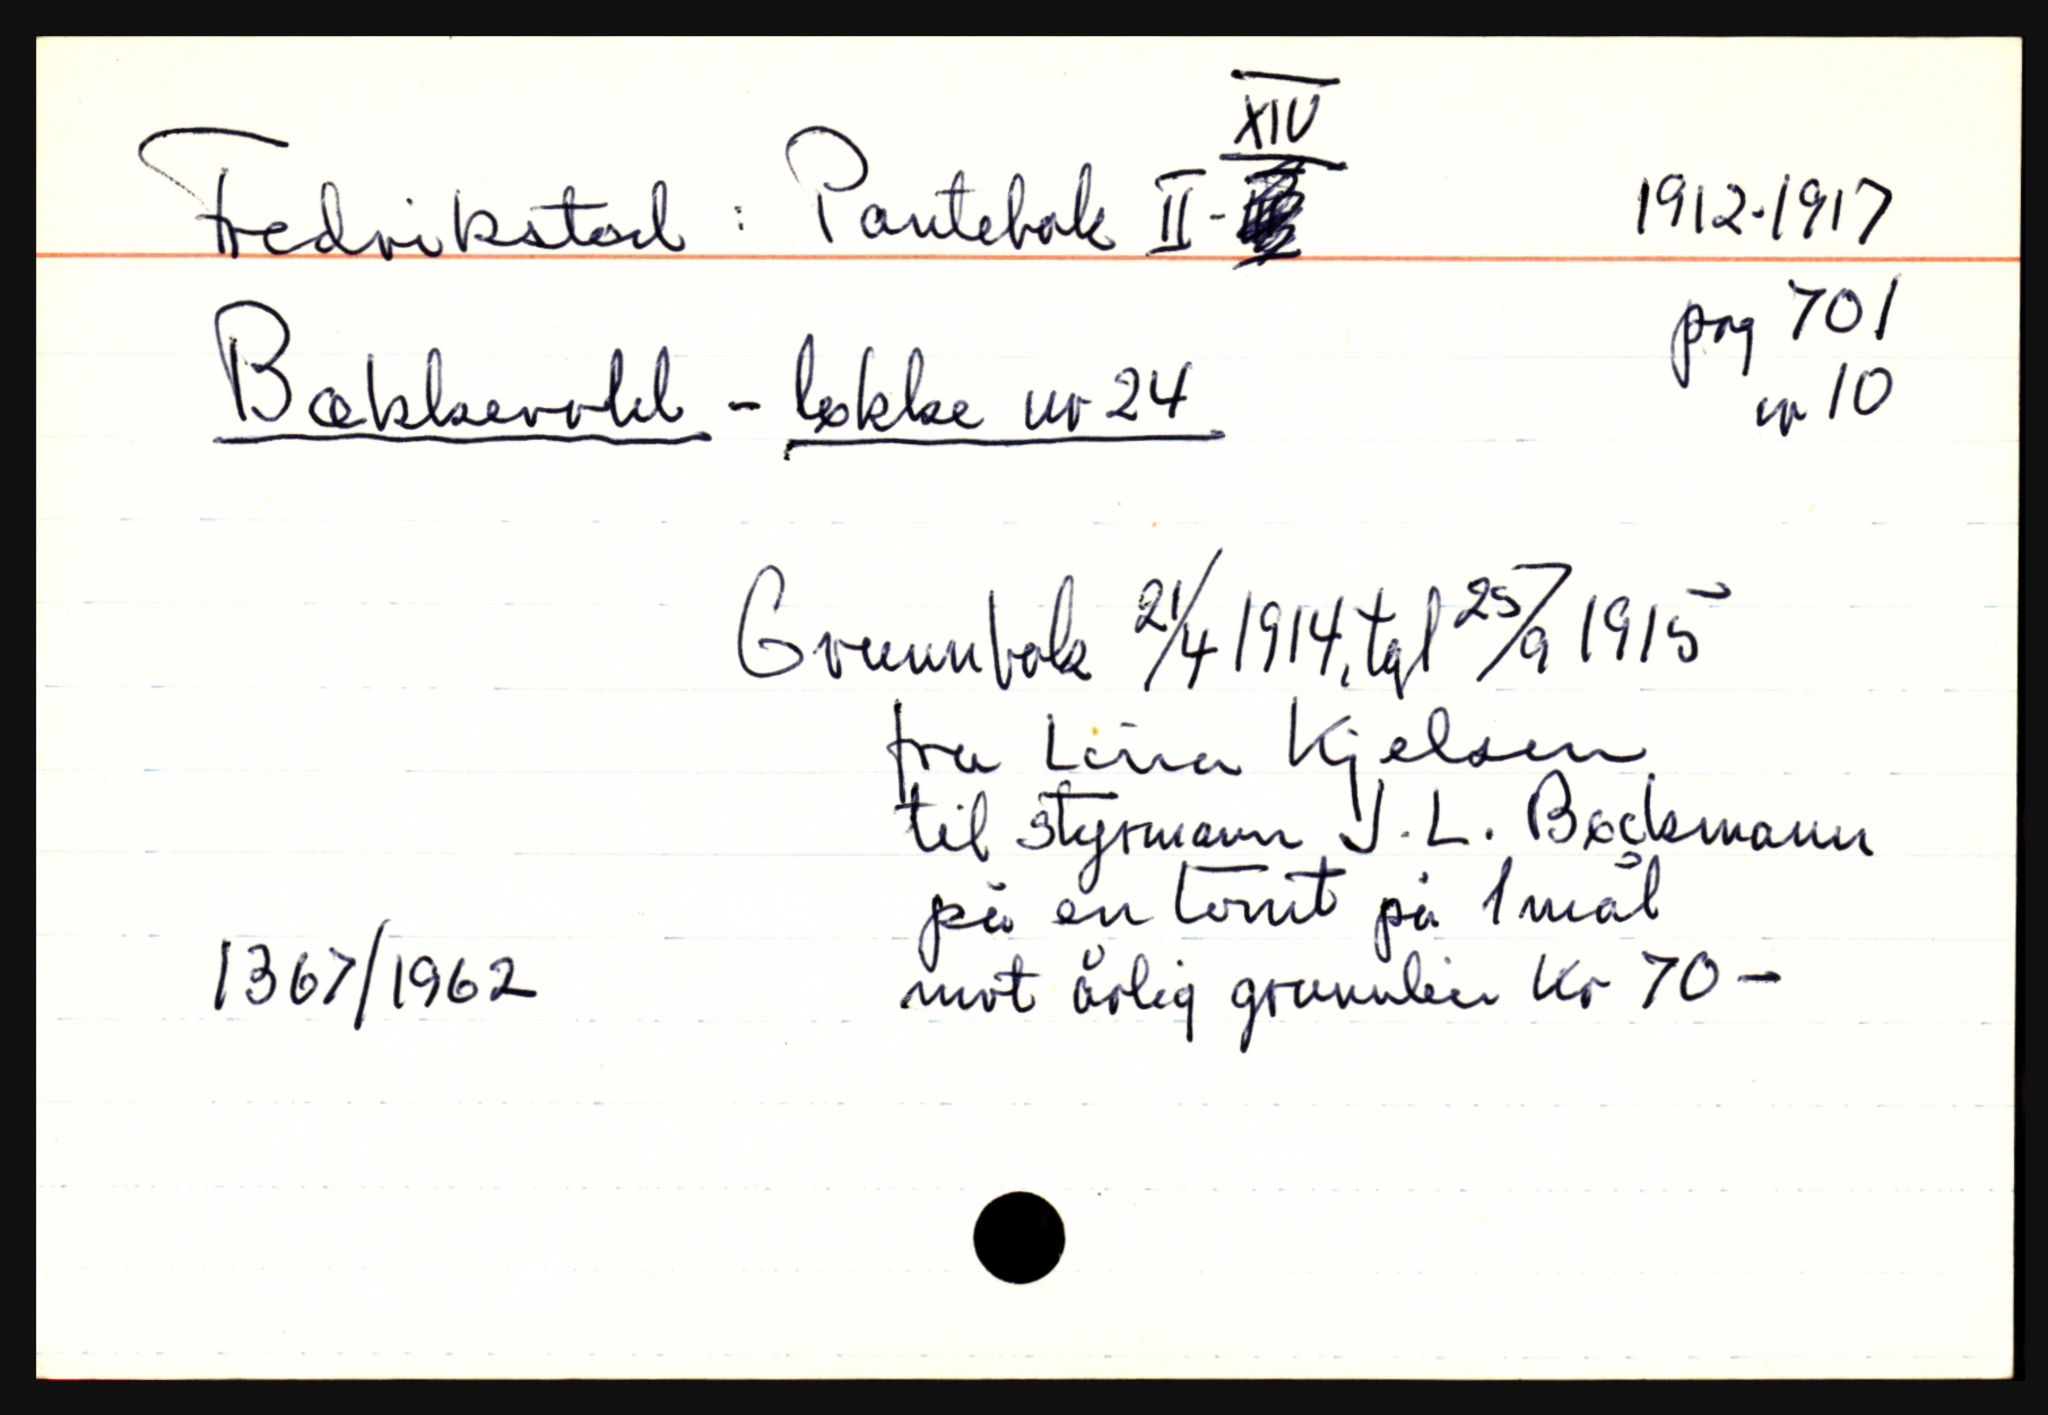 Fredrikstad : Pantebok II - XIV 1912-1917
pag 701
Bækkevold - løkke nr 24
nr 10
Grunnbok 21/4 1914, tgl 25/9 1915
fra Lina Kjelsen
til styrmann J. L. Bøckmann
på en tomt på 1 mål
mot årlig grunnleie Kr 70 -
1367/1962